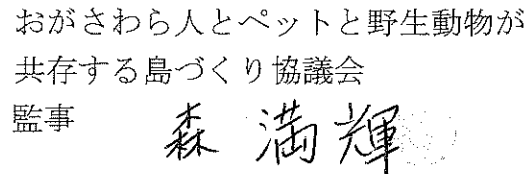 おがさわら人とペットと野生動物が
共存する島づくり協議会
監事 森 満輝